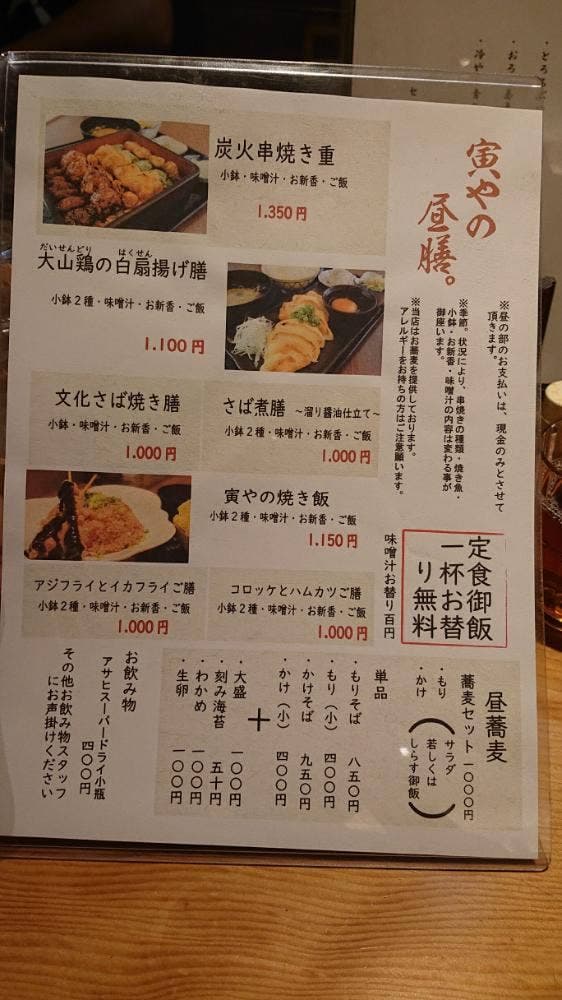 寅やの
昼膳。
※昼の部のお支払いは、現金のみとさせて
頂きます。
※季節。状況により、串焼きの種類・焼き魚・
小鉢・お新香・味噌汁の内容は変わる事が
御座います。
※当店はお蕎麦を提供しております。
アレルギーをお持ちの方はご注意願います。
炭火串焼き重
小鉢・味噌汁・お新香・ご飯
1.350円
だいせんどり はくせん
大山鶏の白扇揚げ膳
小鉢2種・味噌汁・お新香・ご飯
1.100円
文化さば焼き膳
小鉢・味噌汁・お新香・ご飯
1.000円
さば煮膳 ~溜り醤油仕立て~
小鉢2種・味噌汁・お新香・ご飯
1.000円
寅やの焼き飯
小鉢2種・味噌汁・お新香・ご飯
1.150円
アジフライとイカフライご膳
小鉢2種・味噌汁・お新香・ご飯
1.000円
コロッケとハムカツご膳
小鉢2種・味噌汁・お新香・ご飯
1.000円
定食御飯
一杯お替
り無料
味噌汁お替り百円
昼蕎麦
蕎麦セット 一〇〇〇円
・もり
・かけ
(サラダ
若しくは
しらす御飯)
単品
・もりそば 八五〇円
・もり(小) 四〇〇円
・かけそば 九五〇円
・かけ(小) 四〇〇円
+
・大盛 一〇〇円
・刻み海苔 五十円
・わかめ 一〇〇円
・生卵 一〇〇円
お飲み物
アサヒスーパードライ小瓶
四〇〇円
その他お飲み物スタッフ
にお声掛けください